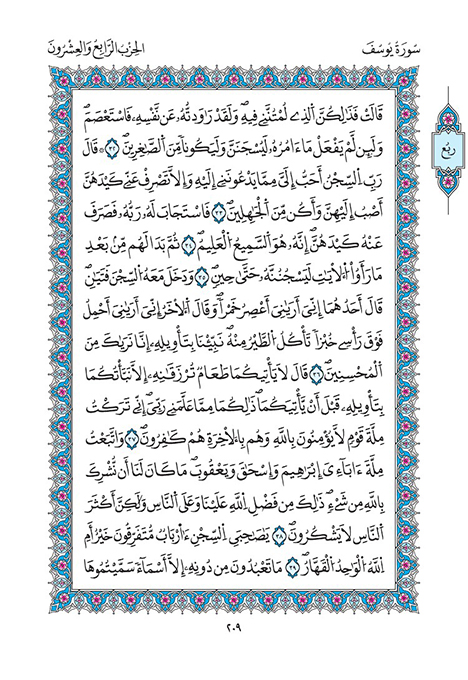 سُورَةُ يُوسُفَ
الحِزْبُ الرَّابِعُ وَالعِشْرُونَ
رُبُع
قَالَتْ فَذَٰلِكُنَّ الَّذِے لُمْتُنَّنِے فِيهِۖ وَلَقَدْ رَٰوَدتُّهُۥ عَن نَّفْسِهِۦ فَاسْتَعْصَمَۖ
وَلَئِن لَّمْ يَفْعَلْ مَا ءَامُرُهُۥ لَيُسْجَنَنَّ وَلَيَكُوناٗ مِّنَ اَ۬لصَّٰغِرِينَۖ ٣٢ قَالَ
رَبِّ اِ۬لسِّجْنُ أَحَبُّ إِلَيَّ مِمَّا يَدْعُونَنِے إِلَيْهِ وَإِلَّا تَصْرِفْ عَنِّے كَيْدَهُنَّ
أَصْبُ إِلَيْهِنَّ وَأَكُن مِّنَ اَ۬لْجَٰهِلِينَۖ ٣٣ فَاسْتَجَابَ لَهُۥ رَبُّهُۥ فَصَرَفَ
عَنْهُ كَيْدَهُنَّۖ إِنَّهُۥ هُوَ اَ۬لسَّمِيعُ اُ۬لْعَلِيمُۖ ٣٤ ثُمَّ بَدَا لَهُم مِّنۢ بَعْدِ
مَا رَأَوُاْ اُ۬لَايَٰتِ لَيَسْجُنُنَّهُۥ حَتَّىٰ حِينٖۖ ٣٥ وَدَخَلَ مَعَهُ اُ۬لسِّجْنَ فَتَيَٰنِۖ
قَالَ أَحَدُهُمَا إِنِّيَ أَرَىٰنِيَ أَعْصِرُ خَمْراٗۖ وَقَالَ اَ۬لَاخَرُ إِنِّيَ أَرَىٰنِيَ أَحْمِلُ
فَوْقَ رَأْسِے خُبْزاٗ تَاكُلُ اُ۬لطَّيْرُ مِنْهُۖ نَبِّئْنَا بِتَاوِيلِهِۦٓ إِنَّا نَرَىٰكَ مِنَ
اَ۬لْمُحْسِنِينَۖ ٣٦ قَالَ لَا يَاتِيكُمَا طَعَامٞ تُرْزَقَٰنِهِۦٓ إِلَّا نَبَّأْتُكُمَا
بِتَاوِيلِهِۦ قَبْلَ أَنْ يَّاتِيَكُمَاۖ ذَٰلِكُمَا مِمَّا عَلَّمَنِے رَبِّيَۖ إِنِّے تَرَكْتُ
مِلَّةَ قَوْمٖ لَّا يُومِنُونَ بِاللَّهِ وَهُم بِالَاخِرَةِ هُمْ كَٰفِرُونَۖ ٣٧ وَاتَّبَعْتُ
مِلَّةَ ءَابَآءِيَ إِبْرَٰهِيمَ وَإِسْحَٰقَ وَيَعْقُوبَۖ مَا كَانَ لَنَا أَن نُّشْرِكَ
بِاللَّهِ مِن شَےْءٖۖ ذَٰلِكَ مِن فَضْلِ اِ۬للَّهِ عَلَيْنَا وَعَلَى اَ۬لنَّاسِ وَلَٰكِنَّ أَكْثَرَ
اَ۬لنَّاسِ لَا يَشْكُرُونَۖ ٣٨ يَٰصَٰحِبَيِ اِ۬لسِّجْنِ ءَآرْبَابٞ مُّتَفَرِّقُونَ خَيْرٌ أَمِ
اِ۬للَّهُ اُ۬لْوَٰحِدُ اُ۬لْقَهَّارُۖ ٣٩ مَا تَعْبُدُونَ مِن دُونِهِۦٓ إِلَّا أَسْمَآءٗ سَمَّيْتُمُوهَا
٢٠٩